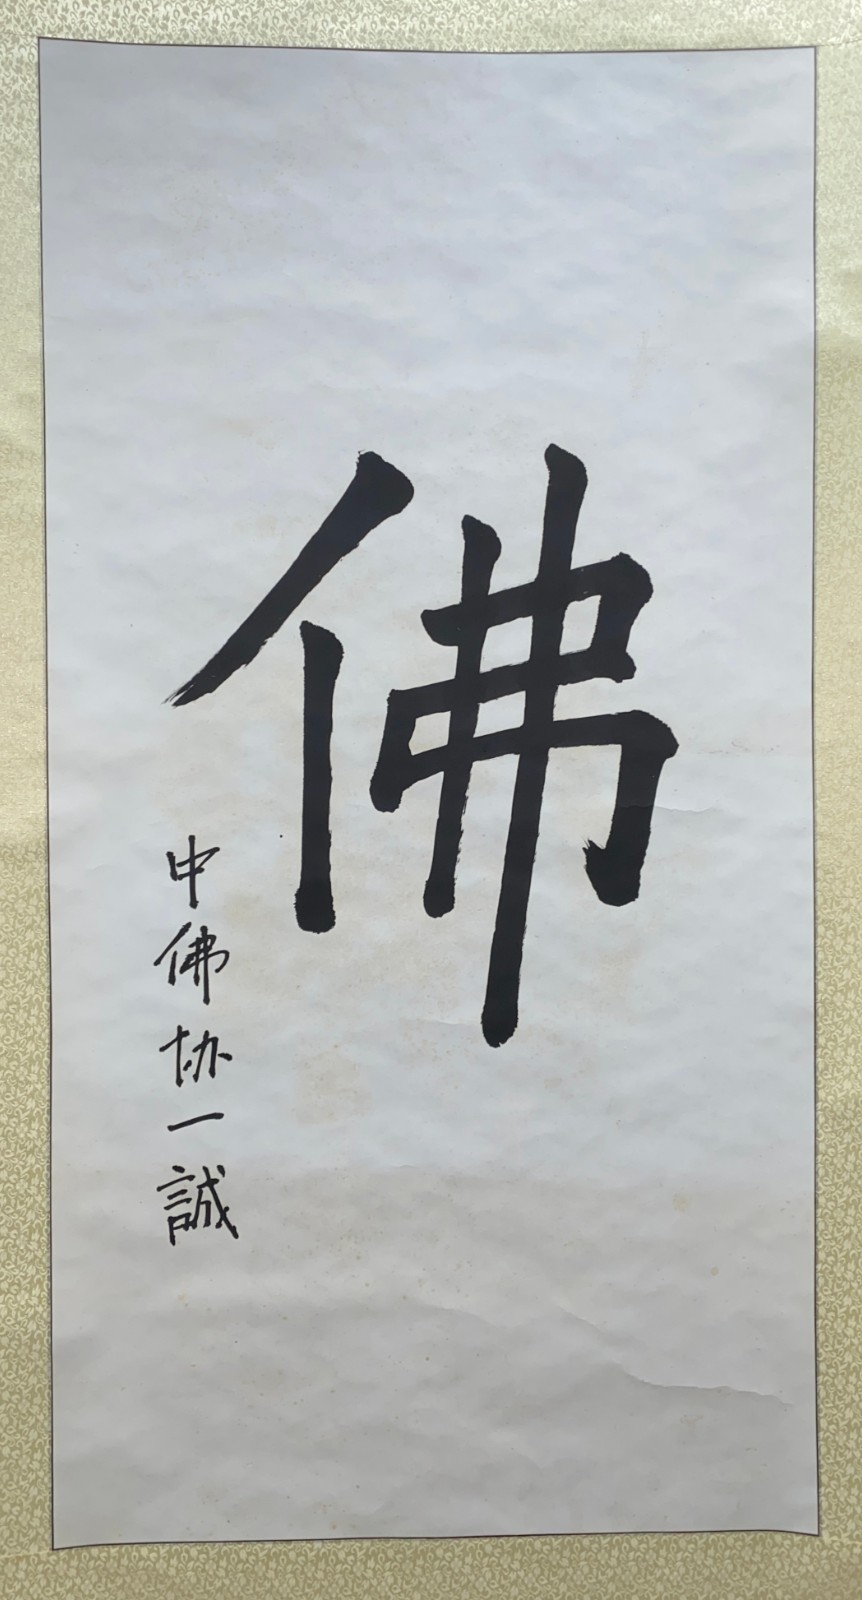 佛
中佛协一誠